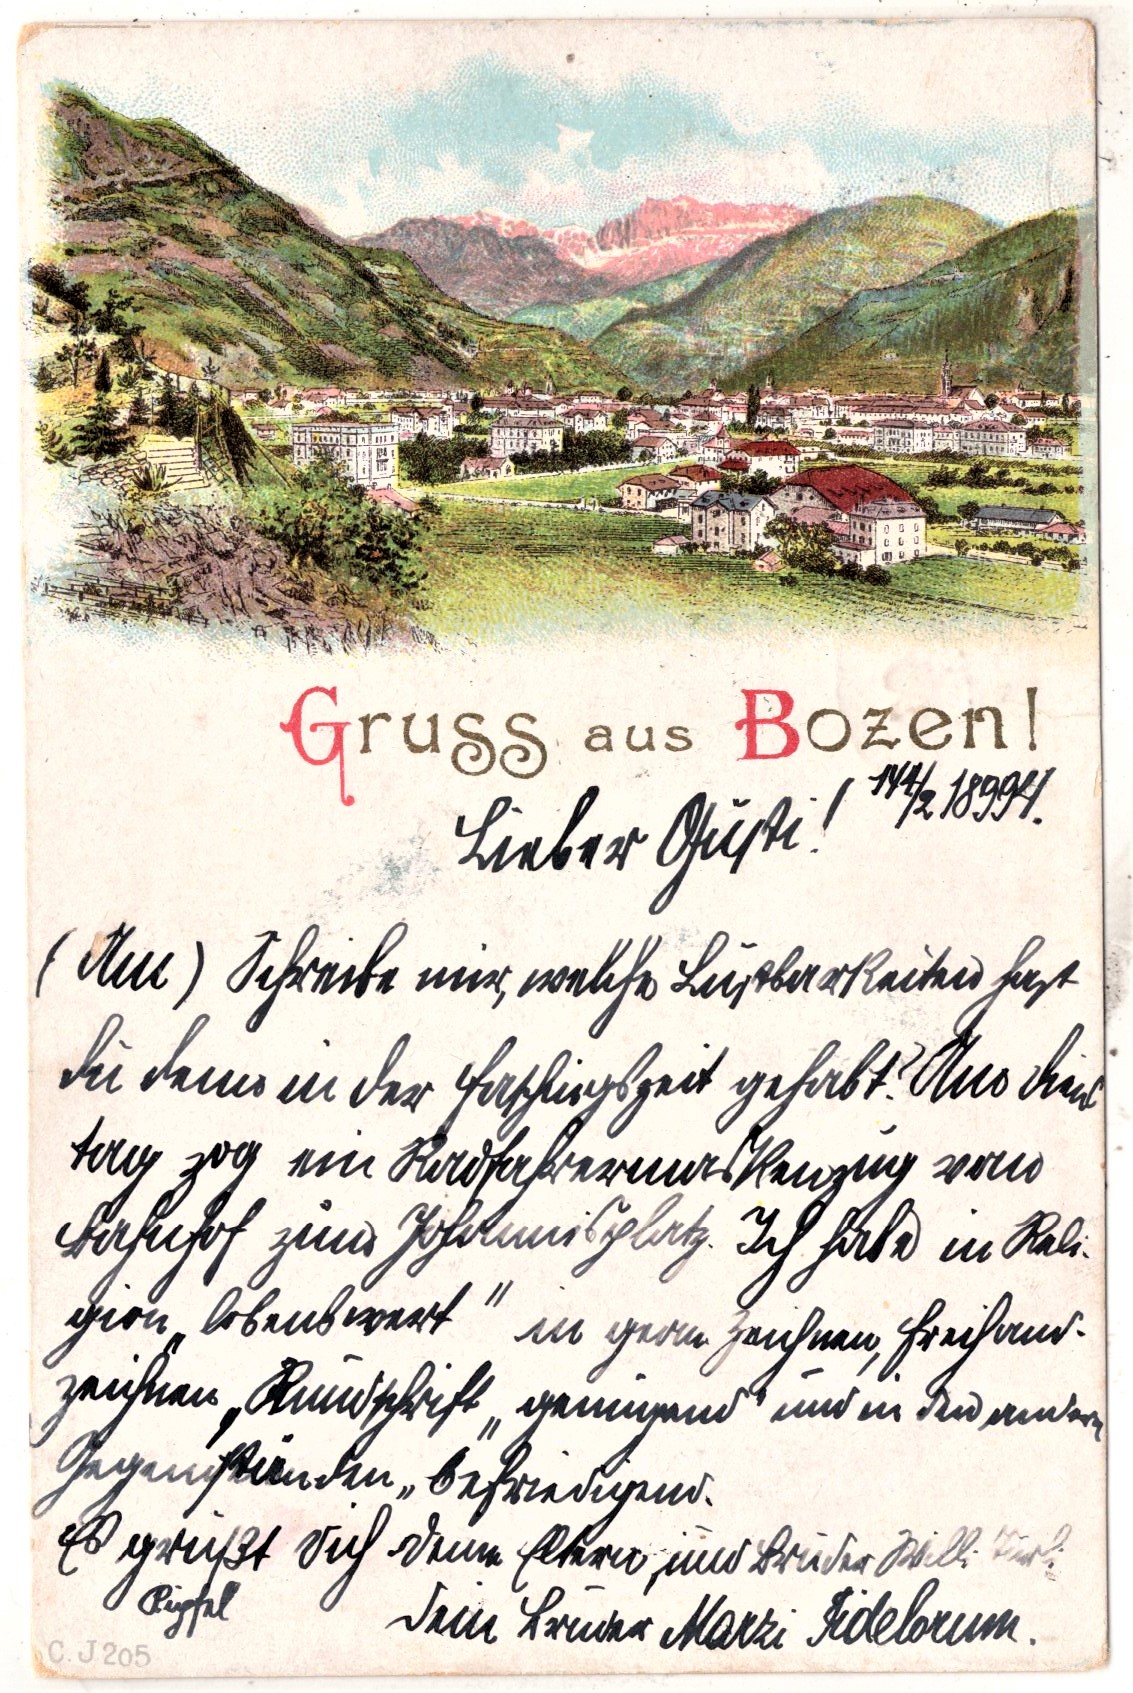 Gruss aus Bozen!
14/2 1899.
Lieber Gusti!
Schreibe mir, welche Lustbarkeiten hast
du denn in der Faschingszeit gehabt? Am Diens
tag zog ein Radfahrermaskenzug vom
Bahnhof zum Johannisplatz. Ich habe in Reli-
gion „lobenswert" in geom. Zeichnen, Freihand-
zeichnen, Rundschrift „genügend" und in den andern
Gegenständen „befriedigend.
Es grüßt Dich deine Eltern, und Bruder Willi
dein Bruder
C. J 205